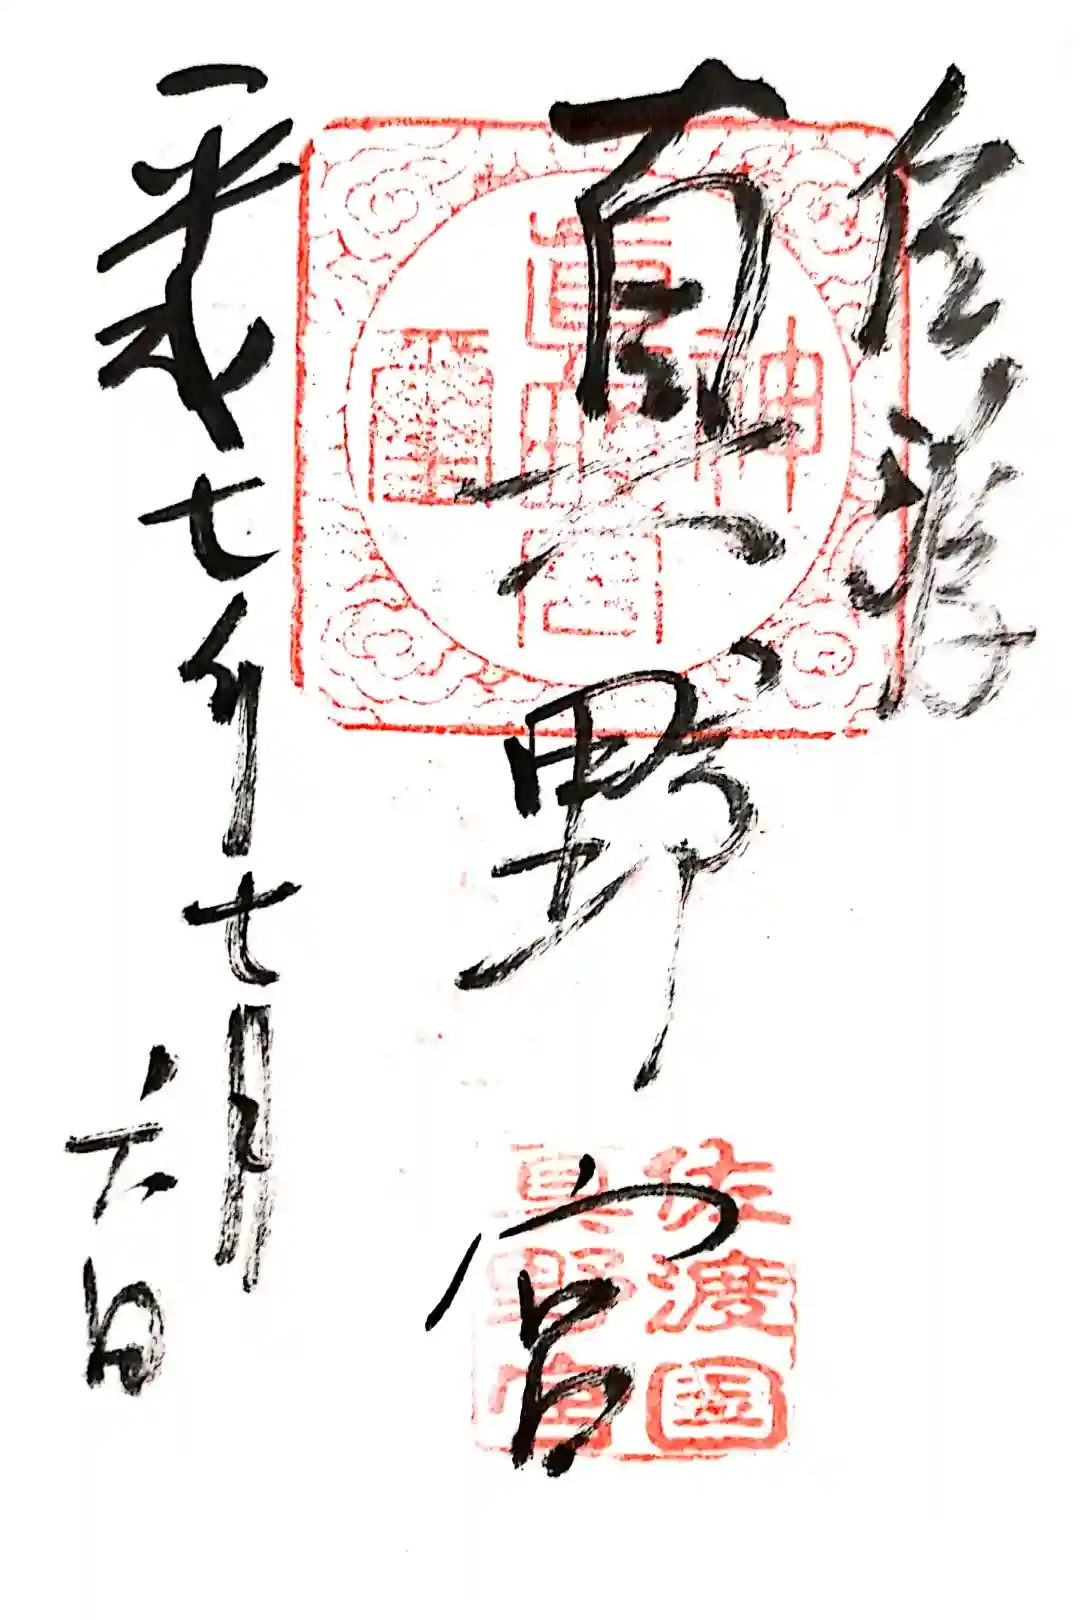 佐渡
真野宮
平成七年七月
六日
神
璽
佐渡国
真野宮